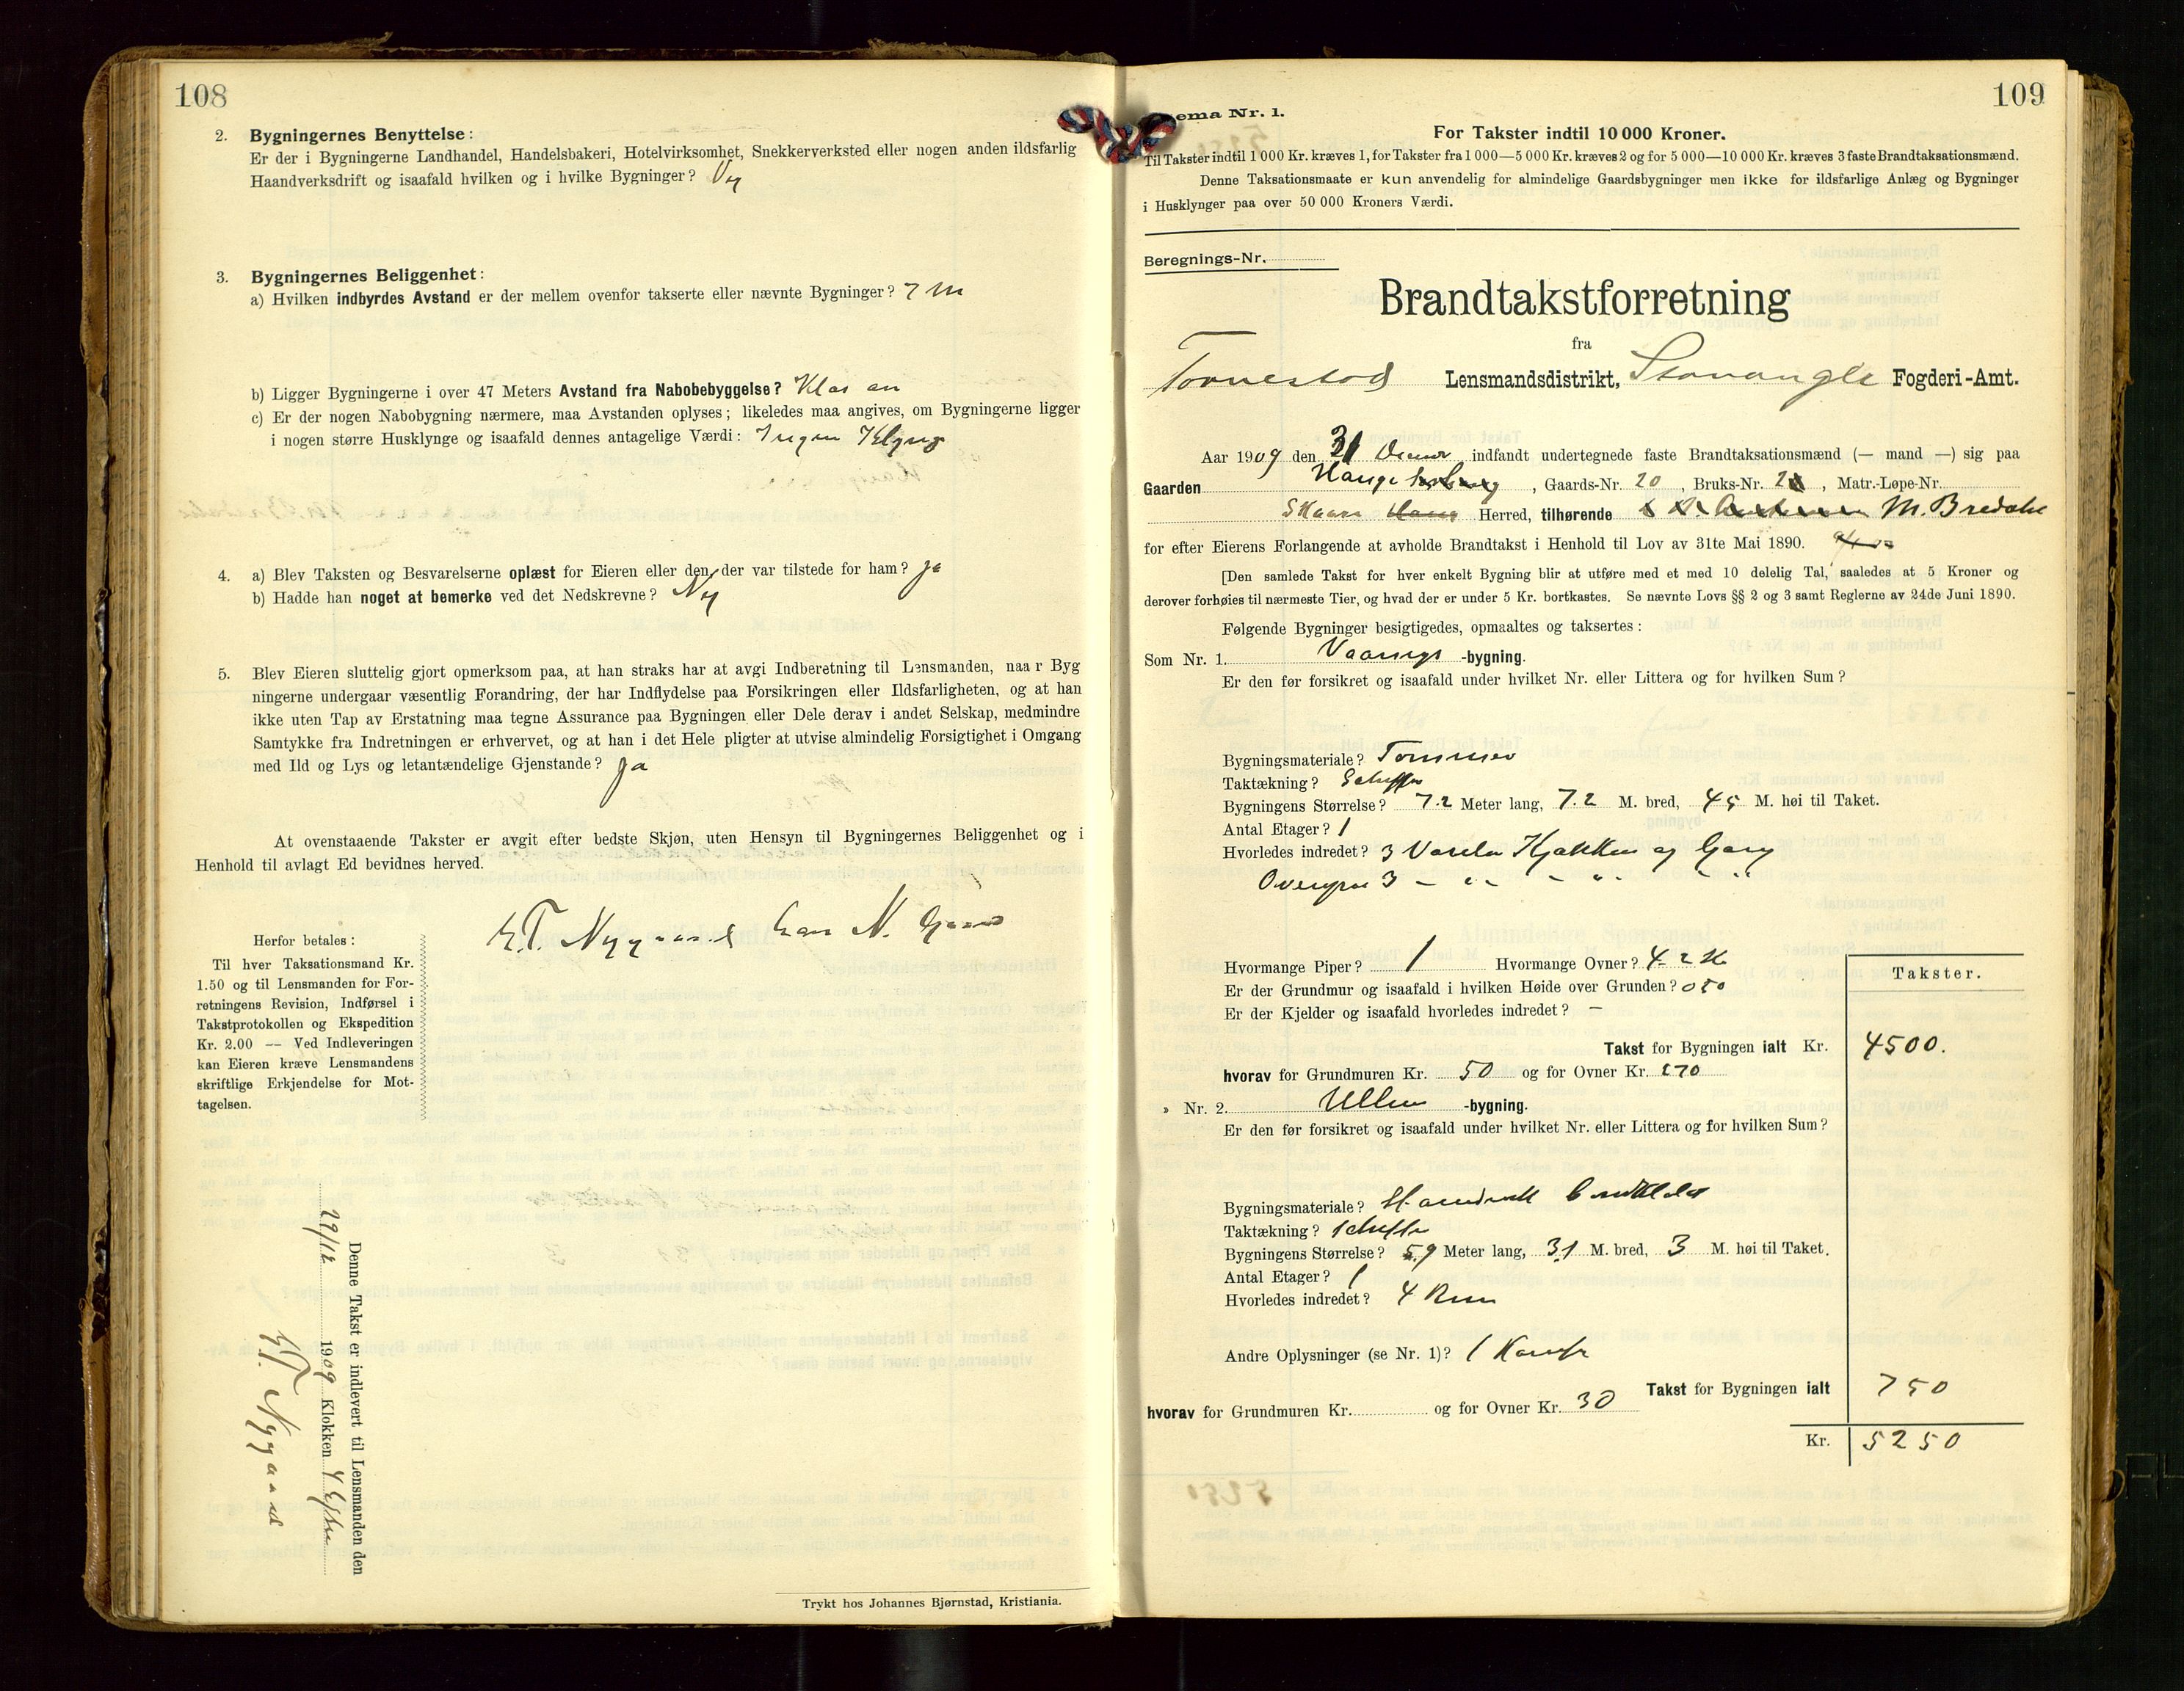 108
2. Bygningernes Benyttelse:
Er der i Bygningerne Landhandel, Handelsbakeri, Hotelvirksomhet, Snekkerverksted eller nogen anden ildsfarlig
Haandverksdrift og isaafald hvilken og i hvilke Bygninger?
3. Bygningernes Beliggenhet:
a) Hvilken indbyrdes Avstand er der mellem ovenfor takserte eller nævnte Bygninger? 7 m
b) Ligger Bygningerne i over 47 Meters Avstand fra Nabobebyggelse?
c) Er der nogen Nabobygning nærmere, maa Avstanden oplyses; likeledes maa angives, om Bygningerne ligger
i nogen større Husklynge og isaafald dennes antagelige Værdi: Ingen Klynge
4. a) Blev Taksten og Besvarelserne oplæst for Eieren eller den, der var tilstede for ham? Ja
b) Hadde han noget at bemerke ved det Nedskrevne? Nei
5. Blev Eieren sluttelig gjort opmerksom paa, at han straks har at avgi Indberetning til Lensmanden, naar Byg
ningerne undergaar væsentlig Forandring, der har Indflydelse paa Forsikringen eller Ildsfarligheten, og at han
ikke uten Tap av Erstatning maa tegne Assurance paa Bygningen eller Dele derav i andet Selskap, medmindre
Samtykke fra Indretningen er erhvervet, og at han i det Hele pligter at utvise almindelig Forsigtighet i Omgang
med Ild og Lys og letantændelige Gjenstande? Ja
At ovenstaaende Takster er avgit efter bedste Skjøn, uten Hensyn til Bygningernes Beliggenhet og i
Henhold til avlagt Ed bevidnes herved.
Nygaard
Herfor betales:
Til hver Taksationsmand Kr.
1.50 og til Lensmanden for For-
retningens Revision, Indførsel i
Takstprotokollen og Ekspedition
Kr. 2.00 — Ved Indleveringen
kan Eieren kræve Lensmandens
skriftlige Erkjendelse for Mot-
tagelsen.
Denne Takst er indlevert til Lensmanden den
29/12 1909 Klokken 4 Efter
Nygaard
Trykt hos Johannes Bjørnstad, Kristiania.
109
ema Nr. 1.
For Takster indtil 10 000 Kroner.
Til Takster indtil 1 000 Kr. kræves 1, for Takster fra 1 000—5 000 Kr. kræves 2 og for 5 000—10 000 Kr. kræves 3 faste Brandtaksationsmænd.
Denne Taksationsmaate er kun anvendelig for almindelige Gaardsbygninger men ikke for ildsfarlige Anlæg og Bygninger
i Husklynger paa over 50 000 Kroners Værdi.
Beregnings-Nr.
Brandtakstforretning
fra
Torvestad Lensmandsdistrikt, Stavanger Fogderi-Amt.
Aar 1909 den 31 indfandt undertegnede faste Brandtaksationsmænd (— mand —) sig paa
Gaarden Hauge, Gaards-Nr. 20, Bruks-Nr. 2, Matr.-Løpe-Nr.
Skaare Herred, tilhørende M. Bredahl
for efter Eierens Forlangende at avholde Brandtakst i Henhold til Lov av 31te Mai 1890.
[Den samlede Takst for hver enkelt Bygning blir at utføre med et med 10 delelig Tal, saaledes at 5 Kroner og
derover forhøies til nærmeste Tier, og hvad der er under 5 Kr. bortkastes. Se nævnte Lovs §§ 2 og 3 samt Reglerne av 24de Juni 1890.
Følgende Bygninger besigtigedes, opmaaltes og taksertes:
Som Nr. 1. Vaanings -bygning.
Er den før forsikret og isaafald under hvilket Nr. eller Littera og for hvilken Sum?
Bygningsmateriale? Tømmer
Taktækning? Skiffer
Bygningens Størrelse? 7.2 Meter lang, 7.2 M. bred, 45 M. høi til Taket.
Antal Etager? 1
Hvorledes indredet? 3 Værelser Kjøkken og Gang
Ovenpaa 3 - „ - „ - „
Hvormange Piper? 1 Hvormange Ovner? 4 2 K
Er der Grundmur og isaafald i hvilken Høide over Grunden? 050
Er der Kjelder og isaafald hvorledes indredet? -
Takster.
Takst for Bygningen ialt Kr. 4500.
hvorav for Grundmuren Kr. 50 og for Ovner Kr. 270
» Nr. 2. -bygning.
Er den før forsikret og isaafald under hvilket Nr. eller Littera og for hvilken Sum?
Bygningsmateriale?
Taktækning? Skiffer
Bygningens Størrelse? 5.9 Meter lang, 3.1 M. bred, 3 M. høi til Taket.
Antal Etager? 1
Hvorledes indredet? 4 Rum
Andre Oplysninger (se Nr. 1)? 1
Takst for Bygningen ialt 750
hvorav for Grundmuren Kr. og for Ovner Kr. 30
Kr. 5250